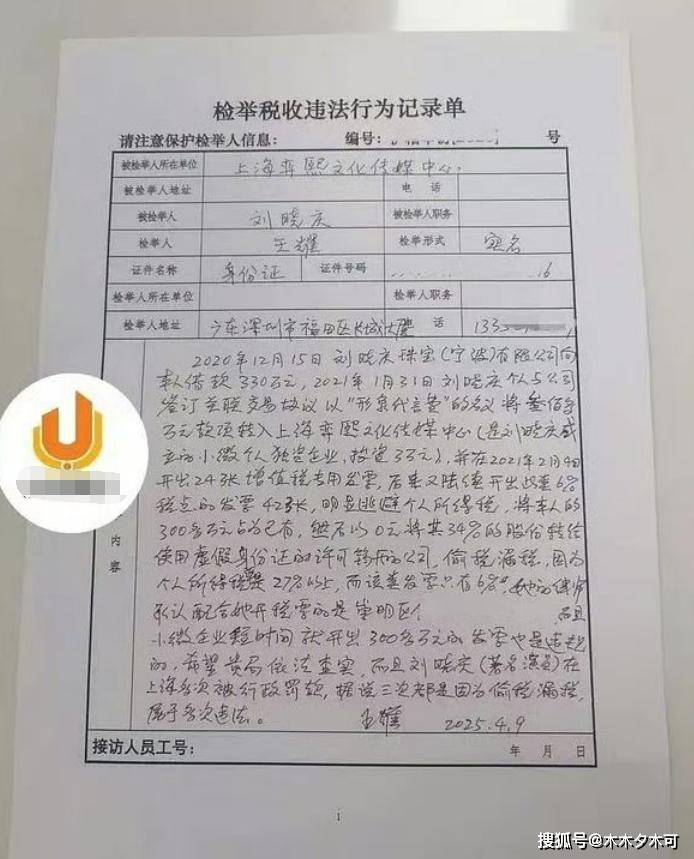 检举税收违法行为记录单
请注意保护检举人信息: 编号: 号
被检举人所在单位 上海弈熙文化传媒中心.
被检举人地址 电 话
被检举人 刘晓庆 被检举人职务
检举人 王耀 检举形式 实名
证件名称 身份证 证件号码 16
检举人所在单位 检举人职务
检举人地址 广东深圳市福田区长城大厦 话 133
2020年12月15日刘晓庆珠宝(宁波)有限公司向
本人借款330万元,2021年1月31日刘晓庆个人与公司
签订关联交易协议以"形象代言费"的名义将叁佰多
万元款项转入上海弈熙文化传媒中心(是刘晓庆成
立的小微个人独资企业,投资3万元),并在2021年2月4日
开出24张增值税专用发票,后来又陆续开出此重6%
税点的发票42张,明显逃避个人所得税,将本人的
300多万元占为己有,然后以0元将其34%的股份转给
使用虚假身份证的许可 的公司,偷税漏税,因为
个人所得税是27%以上,而该发票只有6%。她的律师
承认配合她开税票的是崇明区 而且
小微企业短时间就开出300多万元的发票也是违规
的,希望贵局依法查实,而且刘晓庆(著名演员)在
上海多次被行政罚款,据说三次都是因为偷税漏税,
属于多次违法。 王耀 2025.4.9
内容
接访人员工号: 年 月 日
搜狐号@木木夕木可